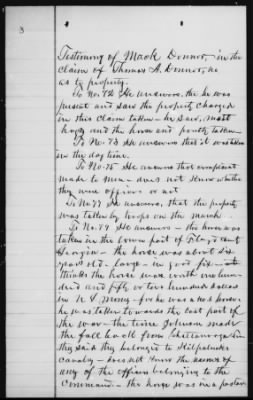 3
Testimony of Mack Donnor, in the
claim of Thomas A. Donnor, as
as to property.
To No. 72 He answers, that he was
present and saw the property charged
in this claim taken - he saw, meat
hogs and the horse and poultry taken
To No. 73 He answers that it was taken
in the day time.
To No. 75 He answers that complaint
made to men - does not know whether
they were officers or not
To No. 77 He answers, that the property
was taken by troops on the march
To No. 79 He answers - the horse was
taken in the town part of
Georgia - the horse was about
years old - large - in good fix - he
thinks the horse was worth one hun-
dred and fifty or two hundred dollars
in U S Money - for he was a good horse -
he was taken towards the last part of
the war - the time Johnson made
the fall back from Chattanooga
they said they belonged to Kilpatricks
cavalry - does not know the names of
any of the officers belonging to the
Command - the horse was in a pasture